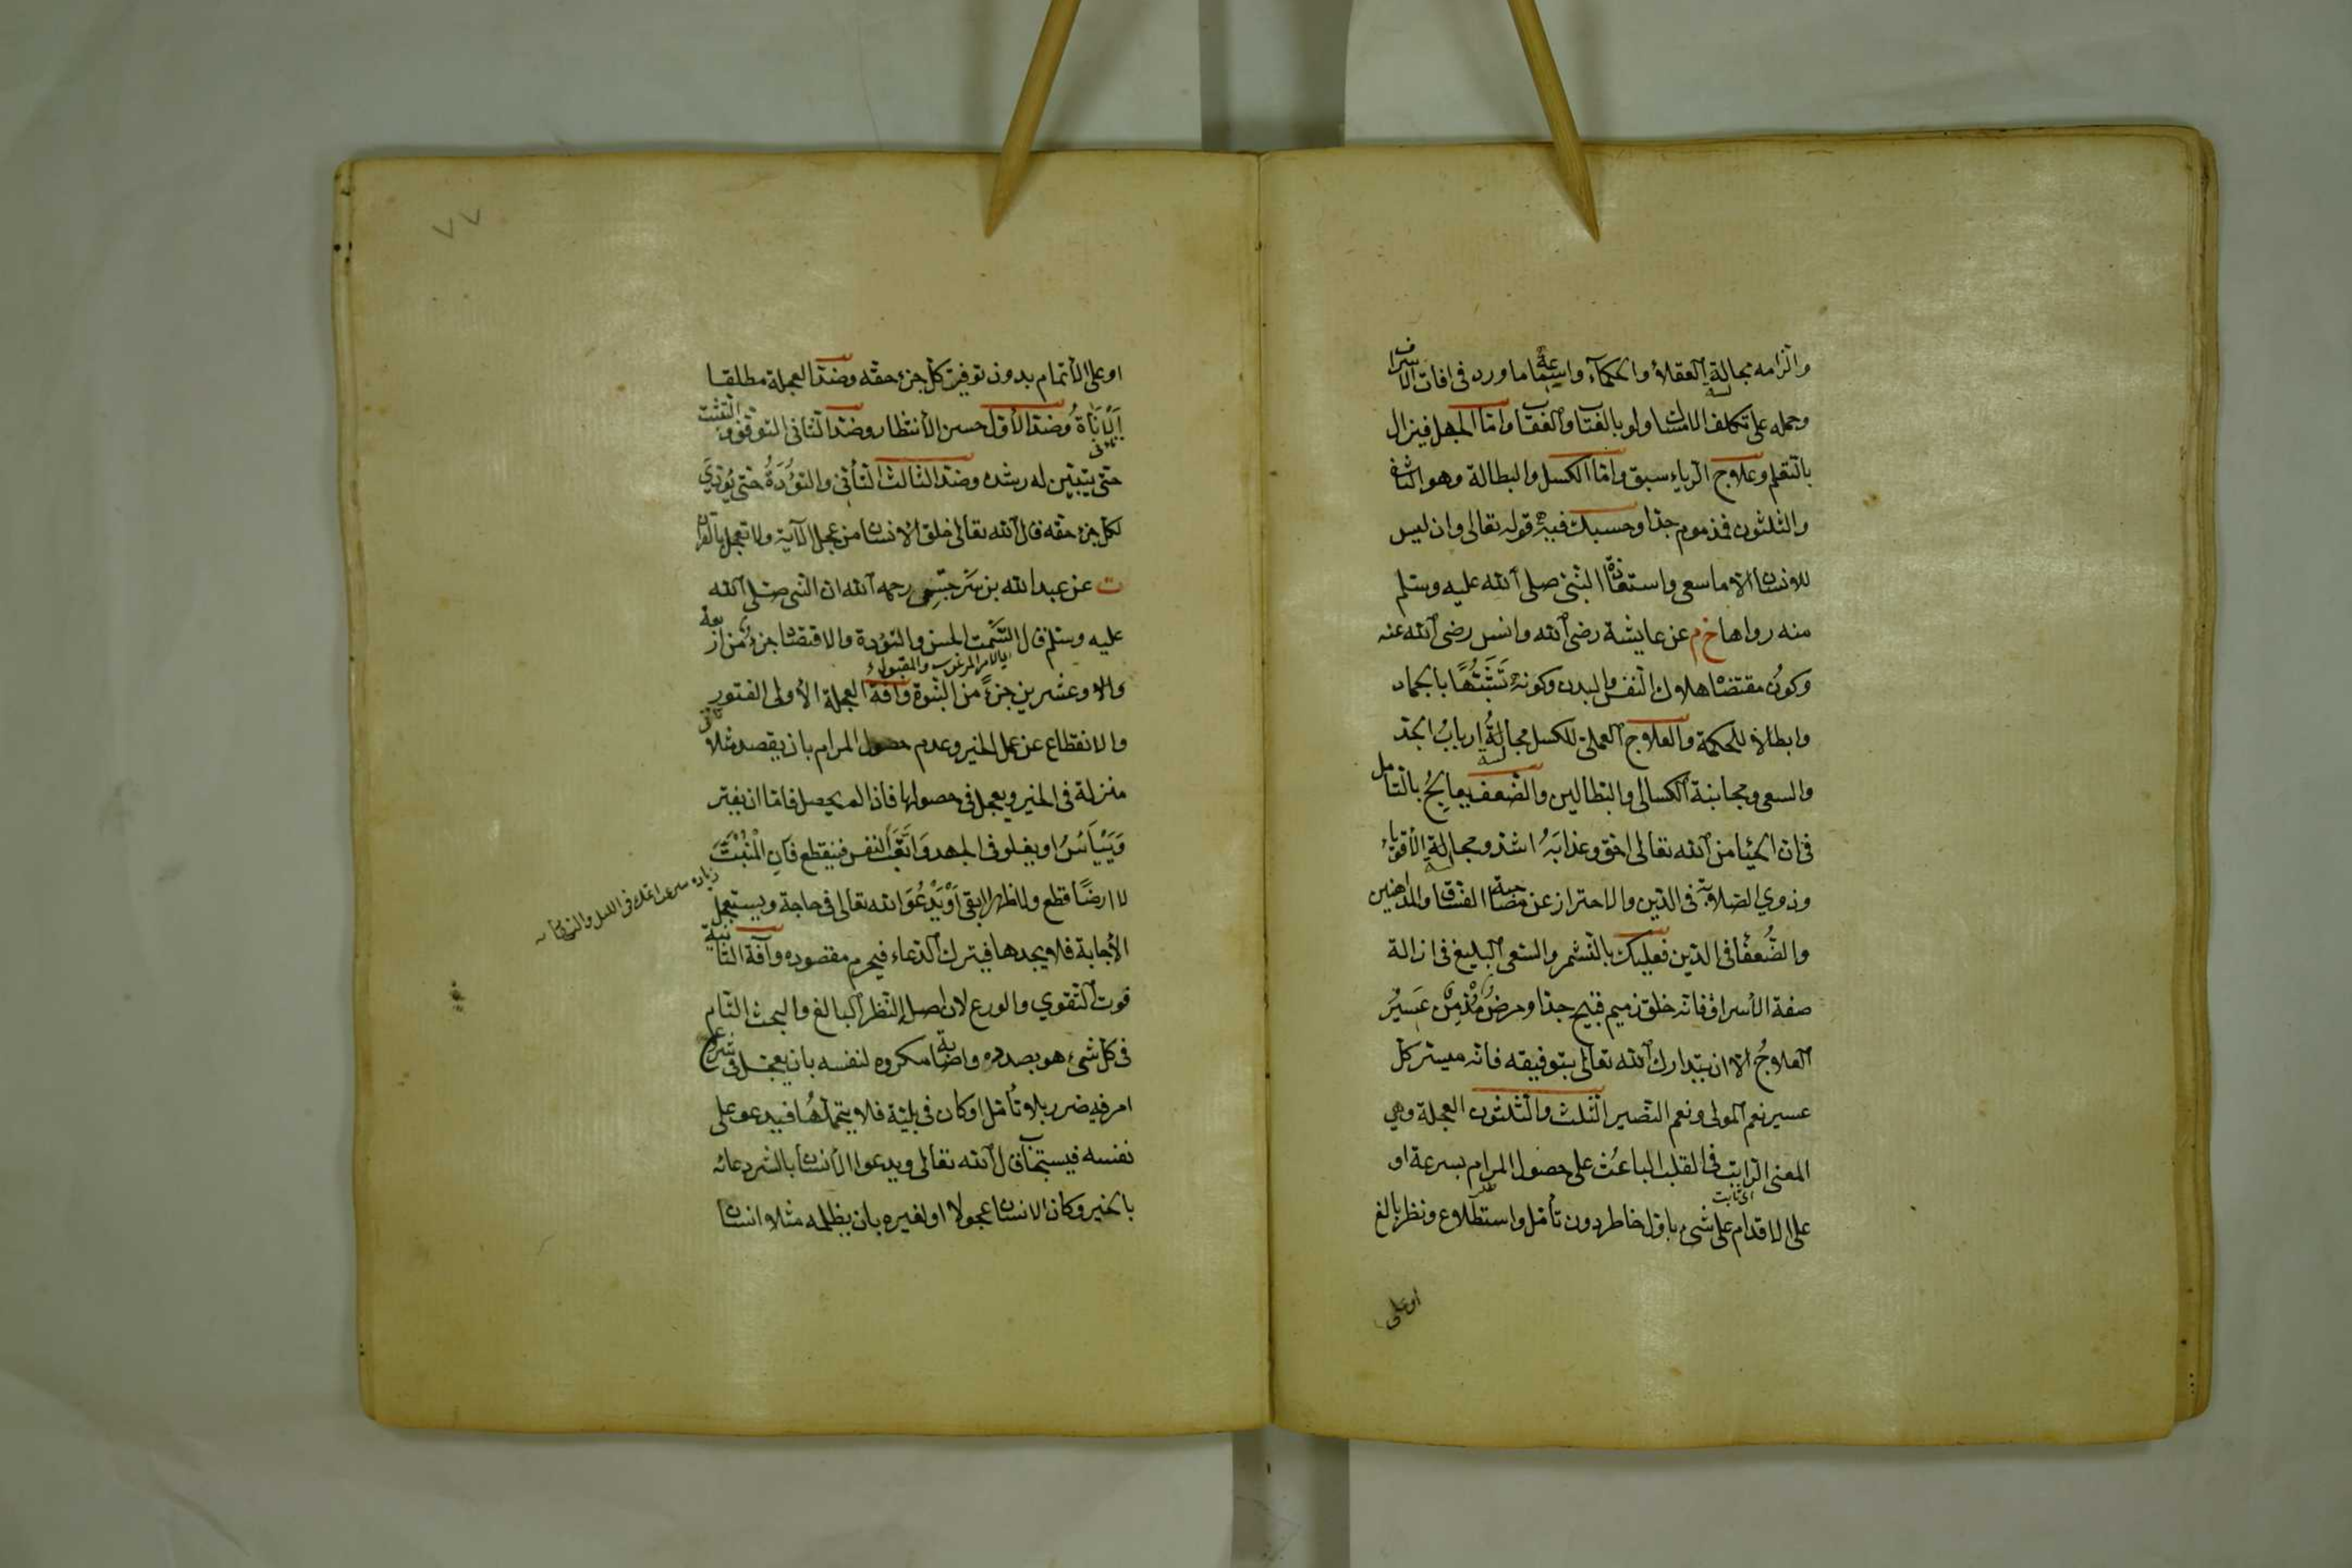 والزامه مجالسة العقلاء والحكماء واستماع ما ورد في افات الاسراف
وحمله على تكلف الامساك ولو بالعتاب والعقاب واما الجهل فيزال
بالتعلم وعلاج الرياء سبق واما الكسل والبطالة وهو الثاني
والثلثون فمذموم جدا وحسبك فيه قوله تعالى وان ليس
للانسان الا ما سعى واستعاذة النبي صلى الله عليه وسلم
منه رواها خ م عن عايشة رضي الله وانس رضي الله عنه
وكون مقتضاه هلاك النفس والبدن وكونه تشبها بالجماد
وابطالا للحكمة والعلاج العملي للكسل مجالسة ارباب الجد
والسعي ومجانبة الكسالى والبطالين والضعف يعالج بالتأمل
في ان الحياء من الله تعالى احق وعذابه اشد ومجالسة الاقوياء
وذوي الصلابة في الدين والاحتراز عن مصاحبة الفساق والمداهنين
والضعفاء في الدين فعليك بالتشمر والسعي البليغ في ازالة
صفة الاسراف فانه خلق ذميم قبيح جدا ومرض مزمن عسير
العلاج الا ان يتدارك الله تعالى بتوفيقه فانه ميسر كل
عسير نعم المولى ونعم النصير الثلث والثلثون العجلة وهي
المعنى الراتب في القلب الباعث على حصول المرام بسرعة او
اى ثابت
على الاقدام على شيء باول خاطر دون تأمل واستطلاع ونظر بالغ
او على
٧٧
او على الاتمام بدون توفير كل جزء حقه وضد العجلة مطلقا
الاناة وضد الاول حسن الانتظار وضد الثاني التوقف والتثبت
حتى يتبين له رشده وضد الثالث التأني والتؤدة حتى يؤدي
لكل جزء حقه قال الله تعالى خلق الانسان من عجل الآية ولا تعجل بالقرآن
ت عن عبد الله بن سرجس رحمه الله ان النبي صلى الله
عليه وسلم قال السمت الحسن والتؤدة والاقتصاد جزء من اربعة
وعشرين جزء من النبوة وآفة العجلة الاولى الفتور
والانقطاع عن عمل الخير وعدم حصول المرام بان يقصد مثلا
منزلة في الخير ويعجل في حصولها فاذا لم يحصل فاما ان يفتر
وييأس او يغلو في الجهد واتعاب النفس فينقطع فان المنبت
لا ارضا قطع ولا ظهرا ابقى او يدعو الله تعالى في حاجة ويستعجل
الاجابة فلا يجدها فيترك الدعاء فيحرم مقصوده وآفة الثانية
فوت التقوي والورع لان اصله النظر البالغ والبحث التام
في كل شيء هو بصدده واصابة مكروه لنفسه بان يعجل في شروع
امر فيه ضرر بلا تأمل او كان في بلية فلا يتحملها فيدعو على
نفسه فيستجاب قال الله تعالى ويدعوا الانسان بالشر دعائه
بالخير وكان الانسان عجولا او لغيره بان يظلمه مثلا انسان